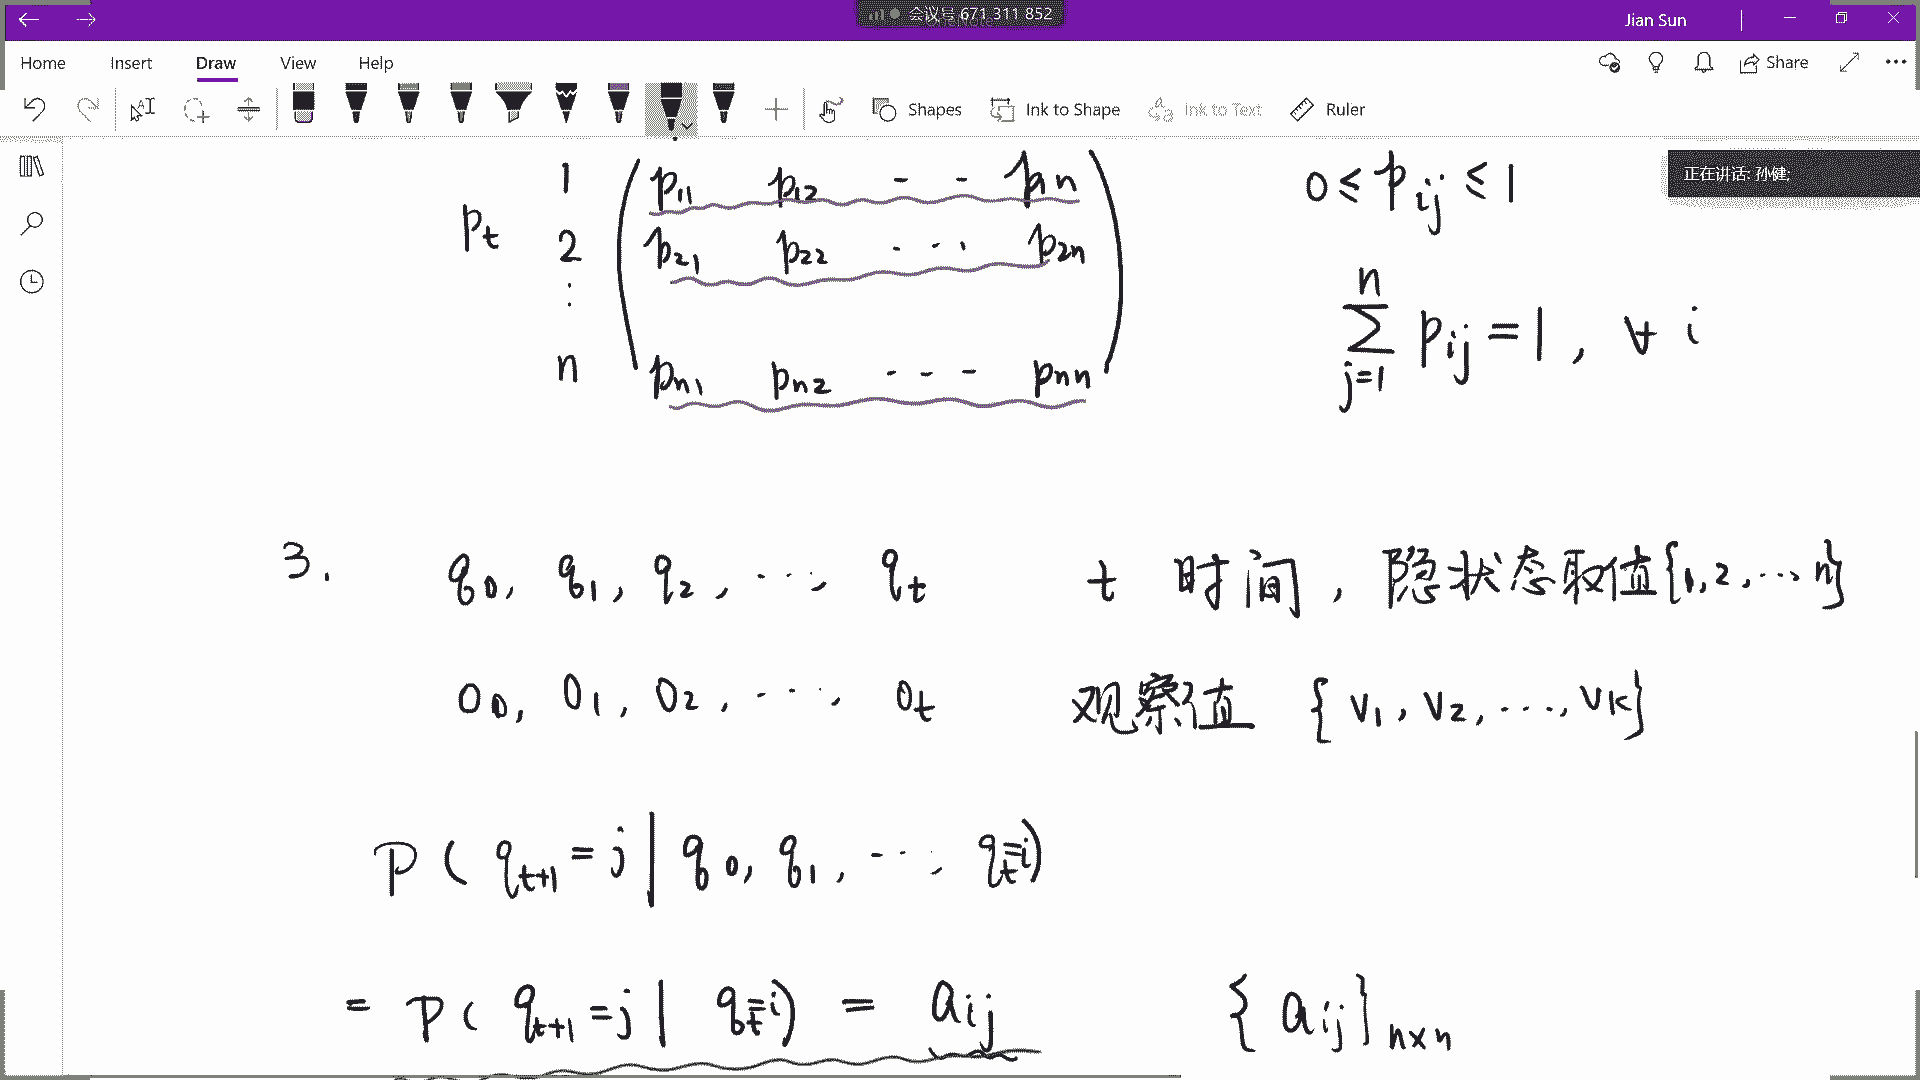 会议号 671 311 852
Jian Sun
Home Insert Draw View Help
Share
Shapes Ink to Shape Ink to Text Ruler
正在讲话: 孙健;
1 p11 p12 - - p1n
0 ≤ pij ≤ 1
pt 2 p21 p22 ... p2n
⋮
n pn1 pn2 - - - pnn
n
∑ pij = 1, ∀ i
j=1
3. q0, q1, q2, ..., qt t 时间, 隐状态取值{1, 2, ..., n}
o0, o1, o2, ..., ot 观察值 {v1, v2, ..., vk}
P( qt+1 = j | q0, q1, ..., qt=i)
= P( qt+1 = j | qt=i) = aij {aij}n×n